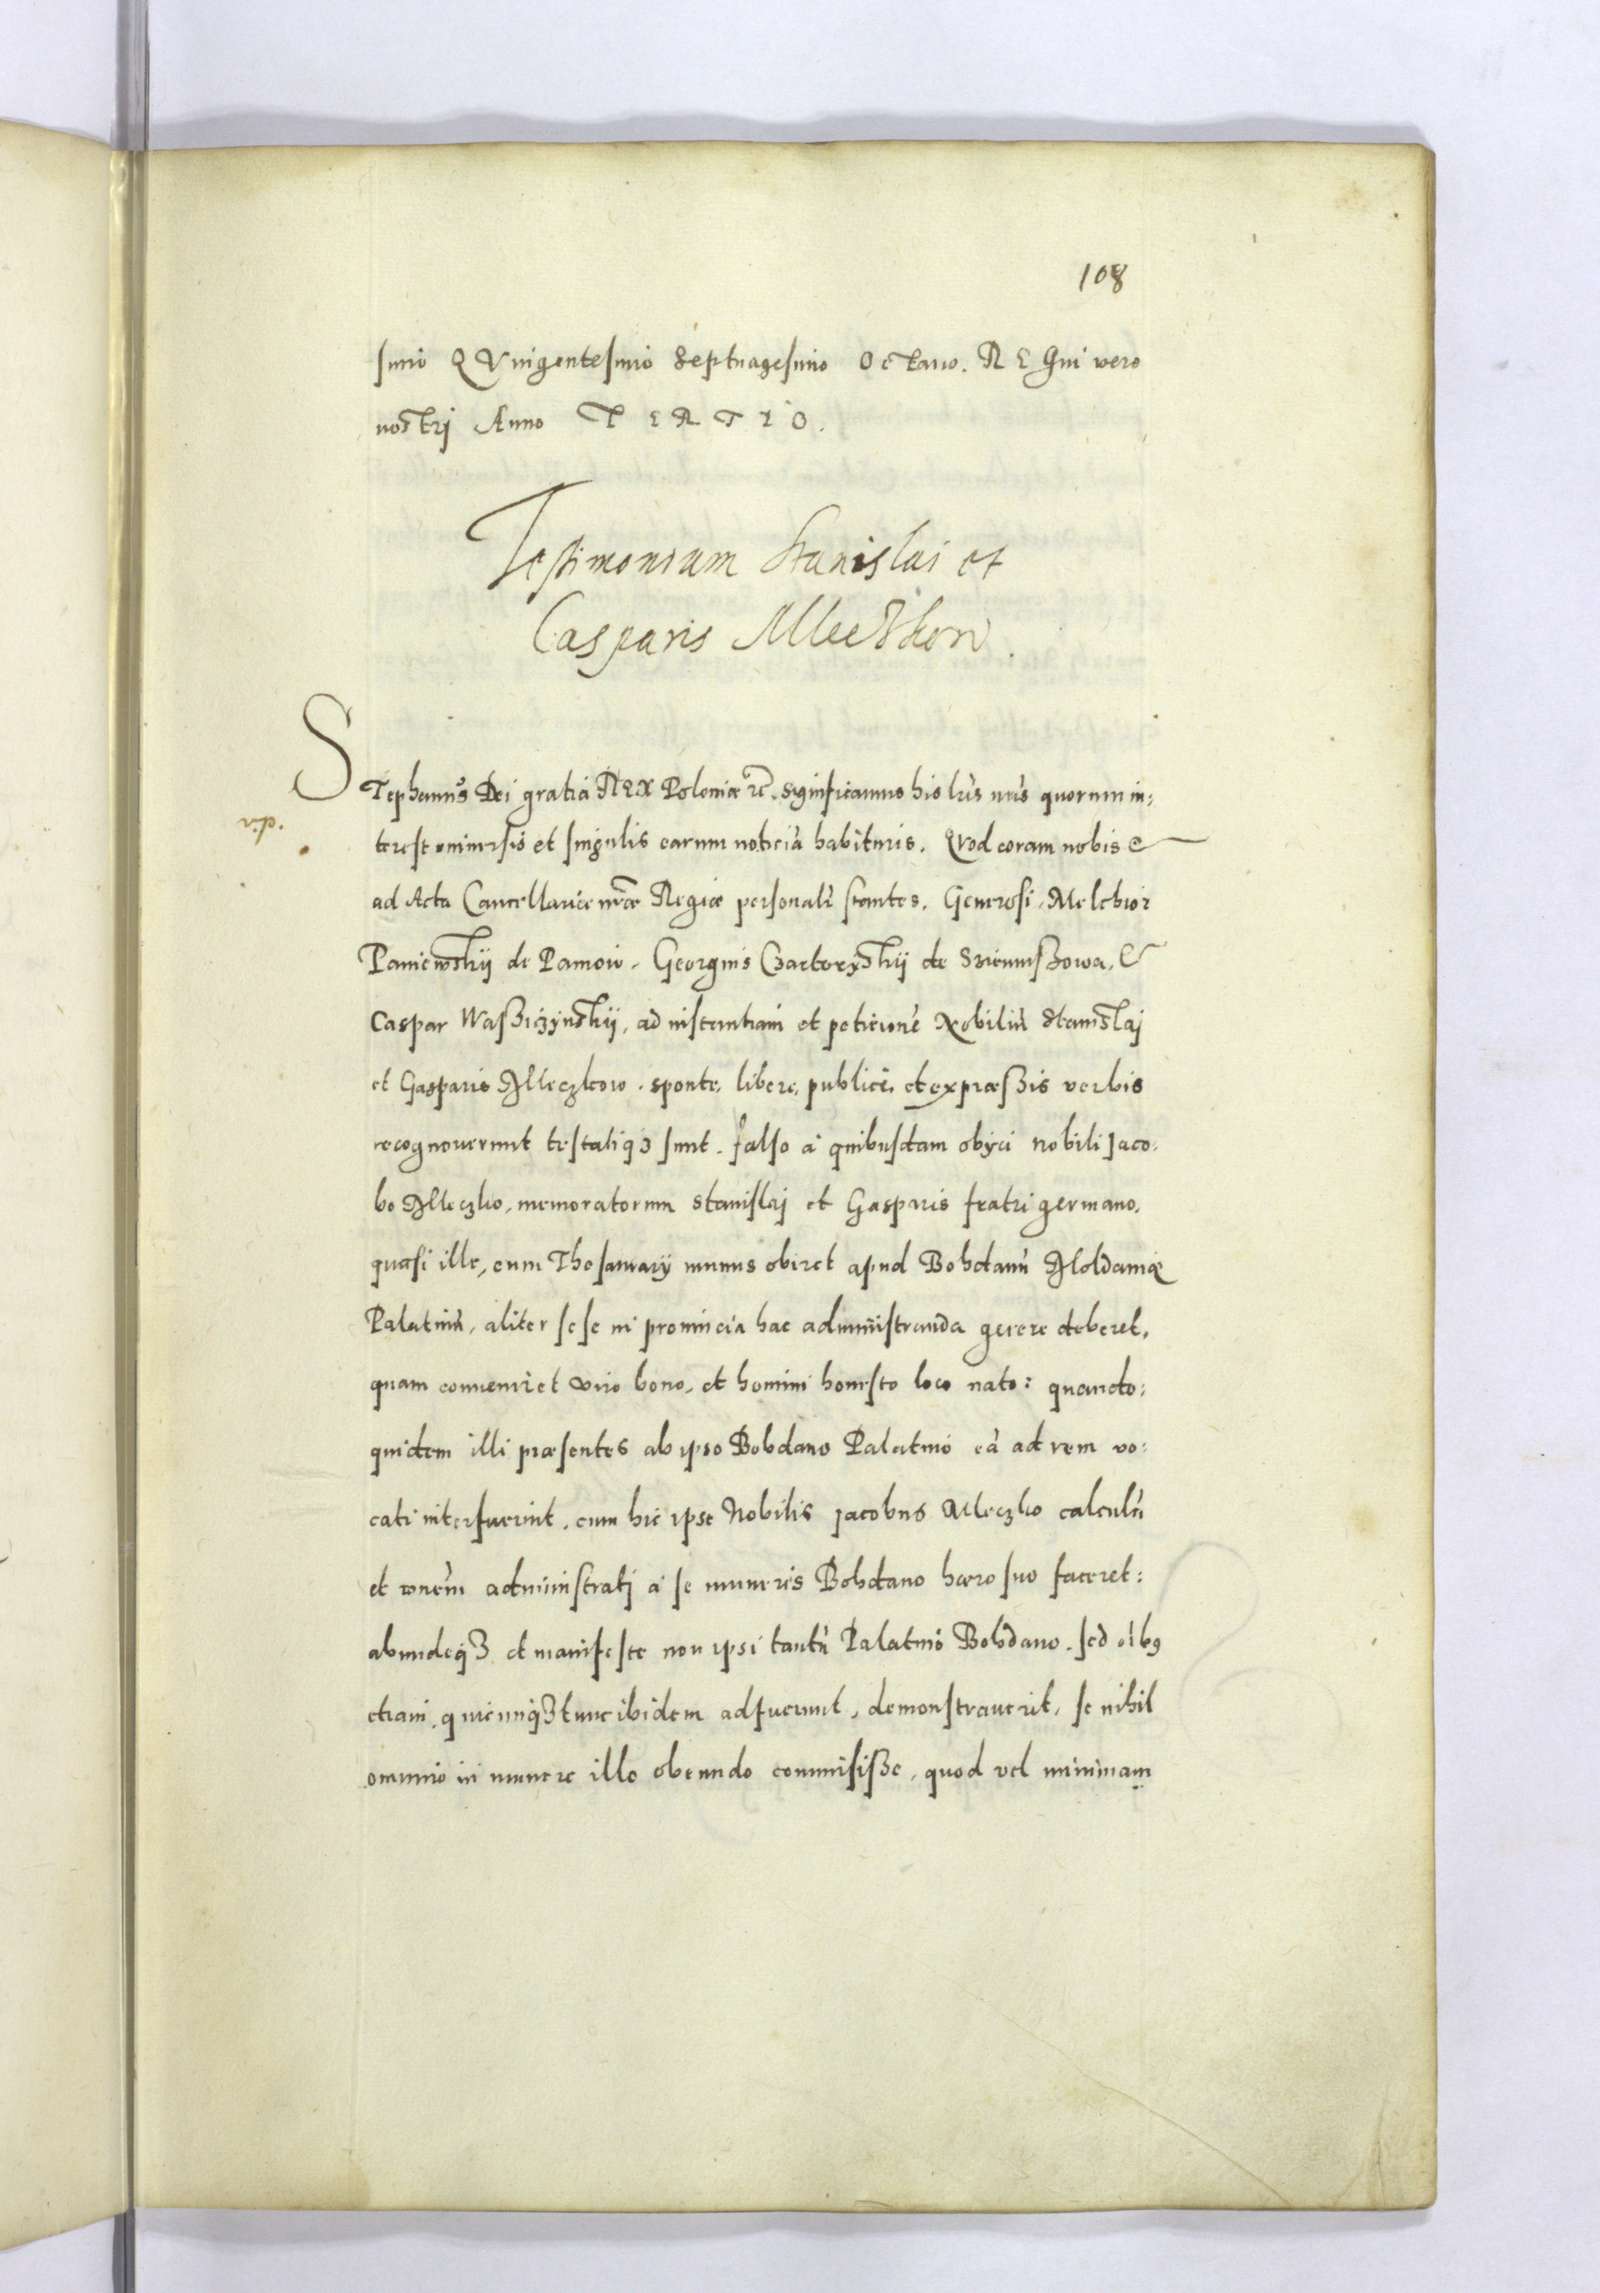 108
simo QVuigentesimo Septuagesimo Octauo. REGni vero
nostrj Anno TERTIO.
Testimonium Stanislai et
Casparis Mleczkow.
STephanus Dei gratia REX Poloniæ etc. Significamus his lris nris quorum in:
terest vniuersis et singulis earum noticiã habituris. Quod coram nobis &
ad Acta Cancellariæ nræ Regiæ personalr stantes. Generosi, Melchior
Paniewskij de Paniow. Georgius Czartoryskij de &
Caspar Waszigzÿnskij, ad instantiam et peticionẽ Nobiliũ Stanislaj
et Gasparis Mleczkow. sponte, libere, publicè, et expræssis verbis
recognouerunt testatiq3 sunt. falso à quibusdam obÿci nobili Jaco:
bo Mleczko, memoratorum Stanislaj et Gasparis fratri germano,
quasi ille, cum Thesaurarÿ munus obiret apud Bohdanũ Moldauiæ
Palatinũ, aliter sese in prouincia hac administranda gerere deberet,
quam conueniret viro bono, et homini honesto loco nato: quando:
quidem illi præsentes ab ipso Bohdano Palatino eã ad rem vo:
cati interfuerint, cum hic ipse Nobilis Jacobus Mleczko calculũ
et ronẽm administratj à se muneris Bohdano hæro suo faceret:
abundeq3 et manifeste non ipsi tantũ Palatino Bohdano. sed oibq
etiam, quicunq3 tunc ibidem adfuerunt, demonstrauerit, se nihil
omnino in munere illo obeundo commisisse, quod vel minimam